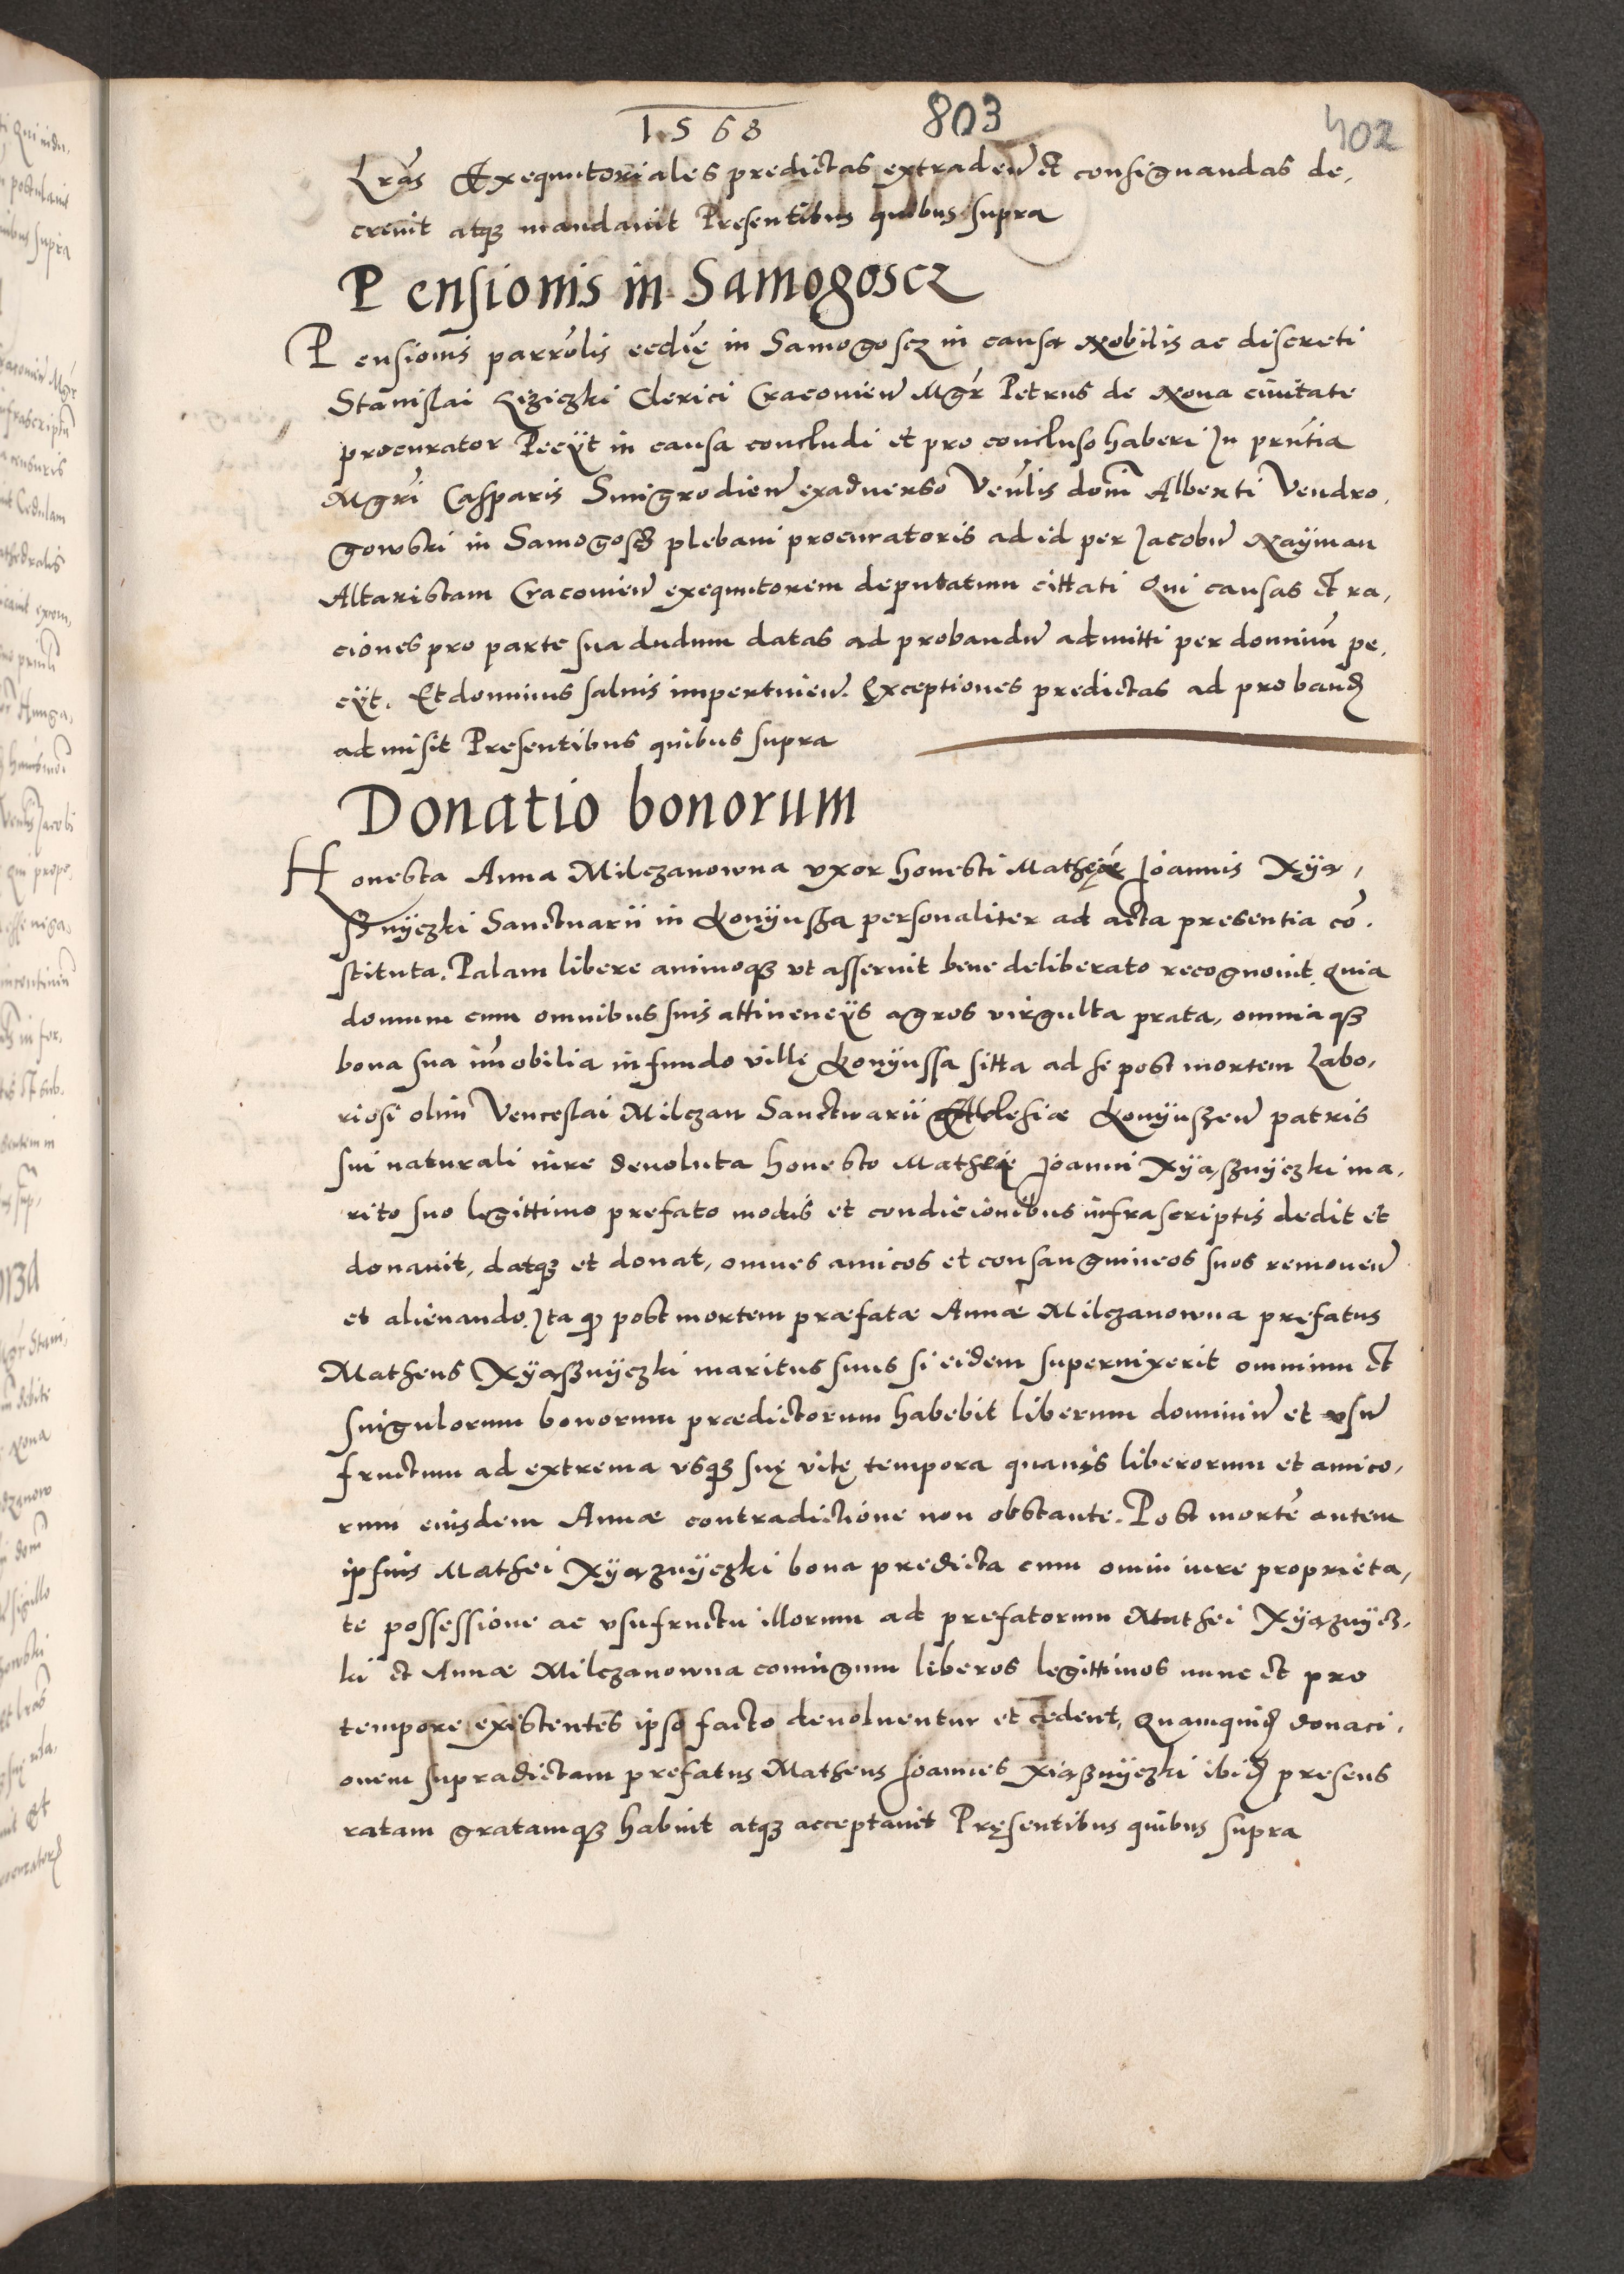 1568
803
402
Lrãs Exequutoriales predictas extradeñ et consignandas de,
crevit atqȝ mandavit Presentibus quibus supra
Pensionis in Samogoscz
Pensionis parrõlis ecclię in Samogoscz in causa Nobilis ac discreti
Stanislai Liziczki Clerici Cracovieñ Mgr̃ Petrus de Nova civitate
procurator Pecÿt in causa concludi et pro concluso haberi In prñtia
Mgrĩ Casparis Smigrodieñ exadverso Veñlis domĩ Alberti Vendro,
gowski in Samogoscz plebani procuratoris ad id per Jacobũ Nayman
Altaristam Cracovieñ exequutorem deputatum cittati Qui causas et ra,
ciones pro parte sua dudum datas ad probandũ admitti per dominũ pe,
cÿt. Et dominus salvis impertineñ. Exceptiones predictas ad proband
admisit Presentibus quibus supra
Donatio bonorum
Honesta Anna Milczanowna vxor honesti Joannis Xÿa,
sznÿczki Sanctuarii in Konÿusza personaliter ad acta presentia cõ,
stituta. Palam libere animoqȝ vt asseruit bene deliberato recognovit. Quia
domum cum omnibus suis attinencÿs agros virgulta prata, omniaqȝ
bona sua im̃obilia in fundo villę Konÿussa sitta ad se post mortem Labo,
riosi olim Venceslai Milczan Sanctuarii Ecclesiæ Konÿuszeñ patris
sui naturali iure devoluta honesto Joanni Xÿasznÿczki ma,
rito suo legittimo prefato modis et condicionibus infrascriptis dedit et
donavit, datqȝ et donat, omnes amicos et consanguineos suos removeñ
et alienando. Ita qd post mortem præfatæ Annæ Milczanowna pręfatus
Matheus Xÿasznÿczki maritus suus si eidem supervixerit omnium et
singulorum bonorum prædictorum habebit liberum dominiũ et vsũ
fructum ad extrema vsqȝ suę vitę tempora quavis liberorum et amico,
rum eiusdem Annæ contradictione non obstante. Post mortẽ autem
ipsius Mathei Xÿaznÿczki bona predicta cum omni iure proprieta,
te possessione ac vsufructu illorum ad prefatorum Mathei Xÿaznÿcz,
ki et Annæ Milczanowna coniugum liberos legittimos nunc et pro
tempore existentes ipso facto devolventur et cedent, Quamquid donaci,
onem supradictam prefatus Matheus Joannes Xiasznÿczki ibid presens
ratam gratamqȝ habuit atqȝ acceptavit Pręsentibus quibus supra